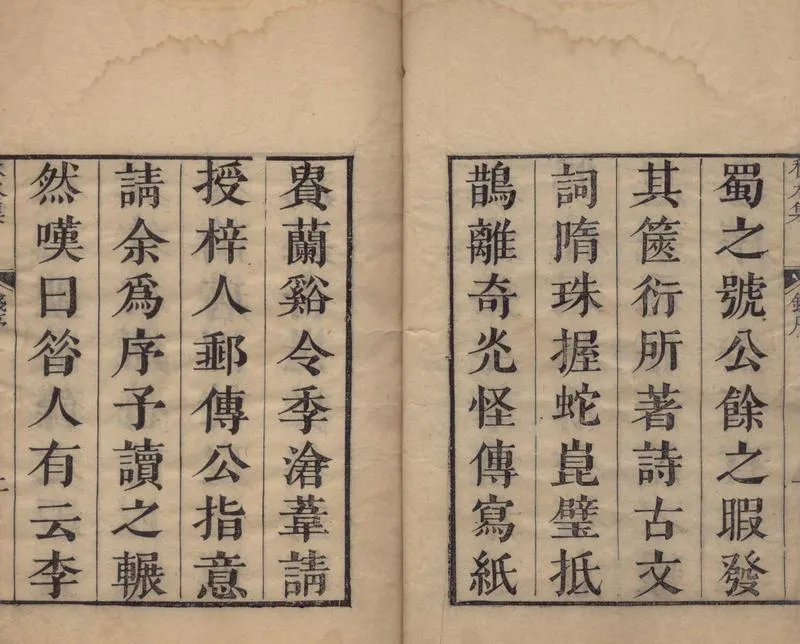 蜀之號公餘之暇發
其篋衍所著詩古文
詞隋珠握蛇崑璧抵
鵲離奇光怪傳寫紙
貴蘭谿令季滄葦請
授梓人郵傳公指意
請余爲序予讀之輾
然嘆曰昔人有云李